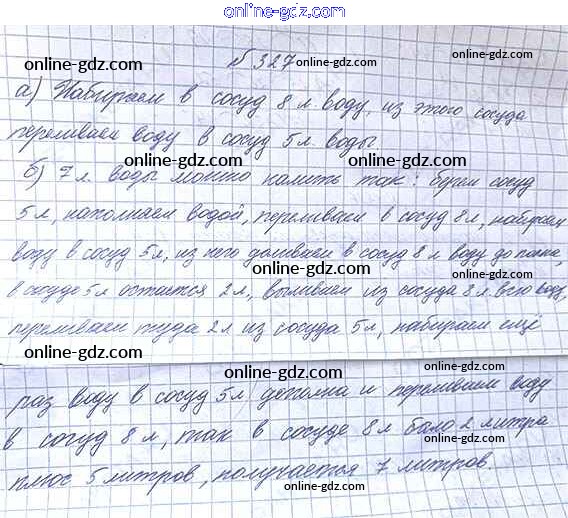 online-gdz.com
№ 327
online-gdz.com online-gdz.com online-gdz.com
а) Набираем в сосуд 8 л воду, из этого сосуда
online-gdz.com
переливаем воду в сосуд 5 л. воды.
online-gdz.com online-gdz.com
б) 7 л. воды можно налить так: берем сосуд
online-gdz.com
5 л, наполняем водой, переливаем в сосуд 8 л, набираем
online-gdz.com
воду в сосуд 5 л, из него доливаем в сосуд 8 л воду до полна,
online-gdz.com online-gdz.com
в сосуде 5 л остается 2 л, выливаем из сосуда 8 л всю воду,
online-gdz.com
переливаем туда 2 л из сосуда 5 л, набираем ещё
online-gdz.com
online-gdz.com
раз воду в сосуд 5 л дополна и переливаем воду
online-gdz.com
в сосуд 8 л, так в сосуде 8 л было 2 литра
online-gdz.com online-gdz.com
плюс 5 литров, получается 7 литров.
online-gdz.com